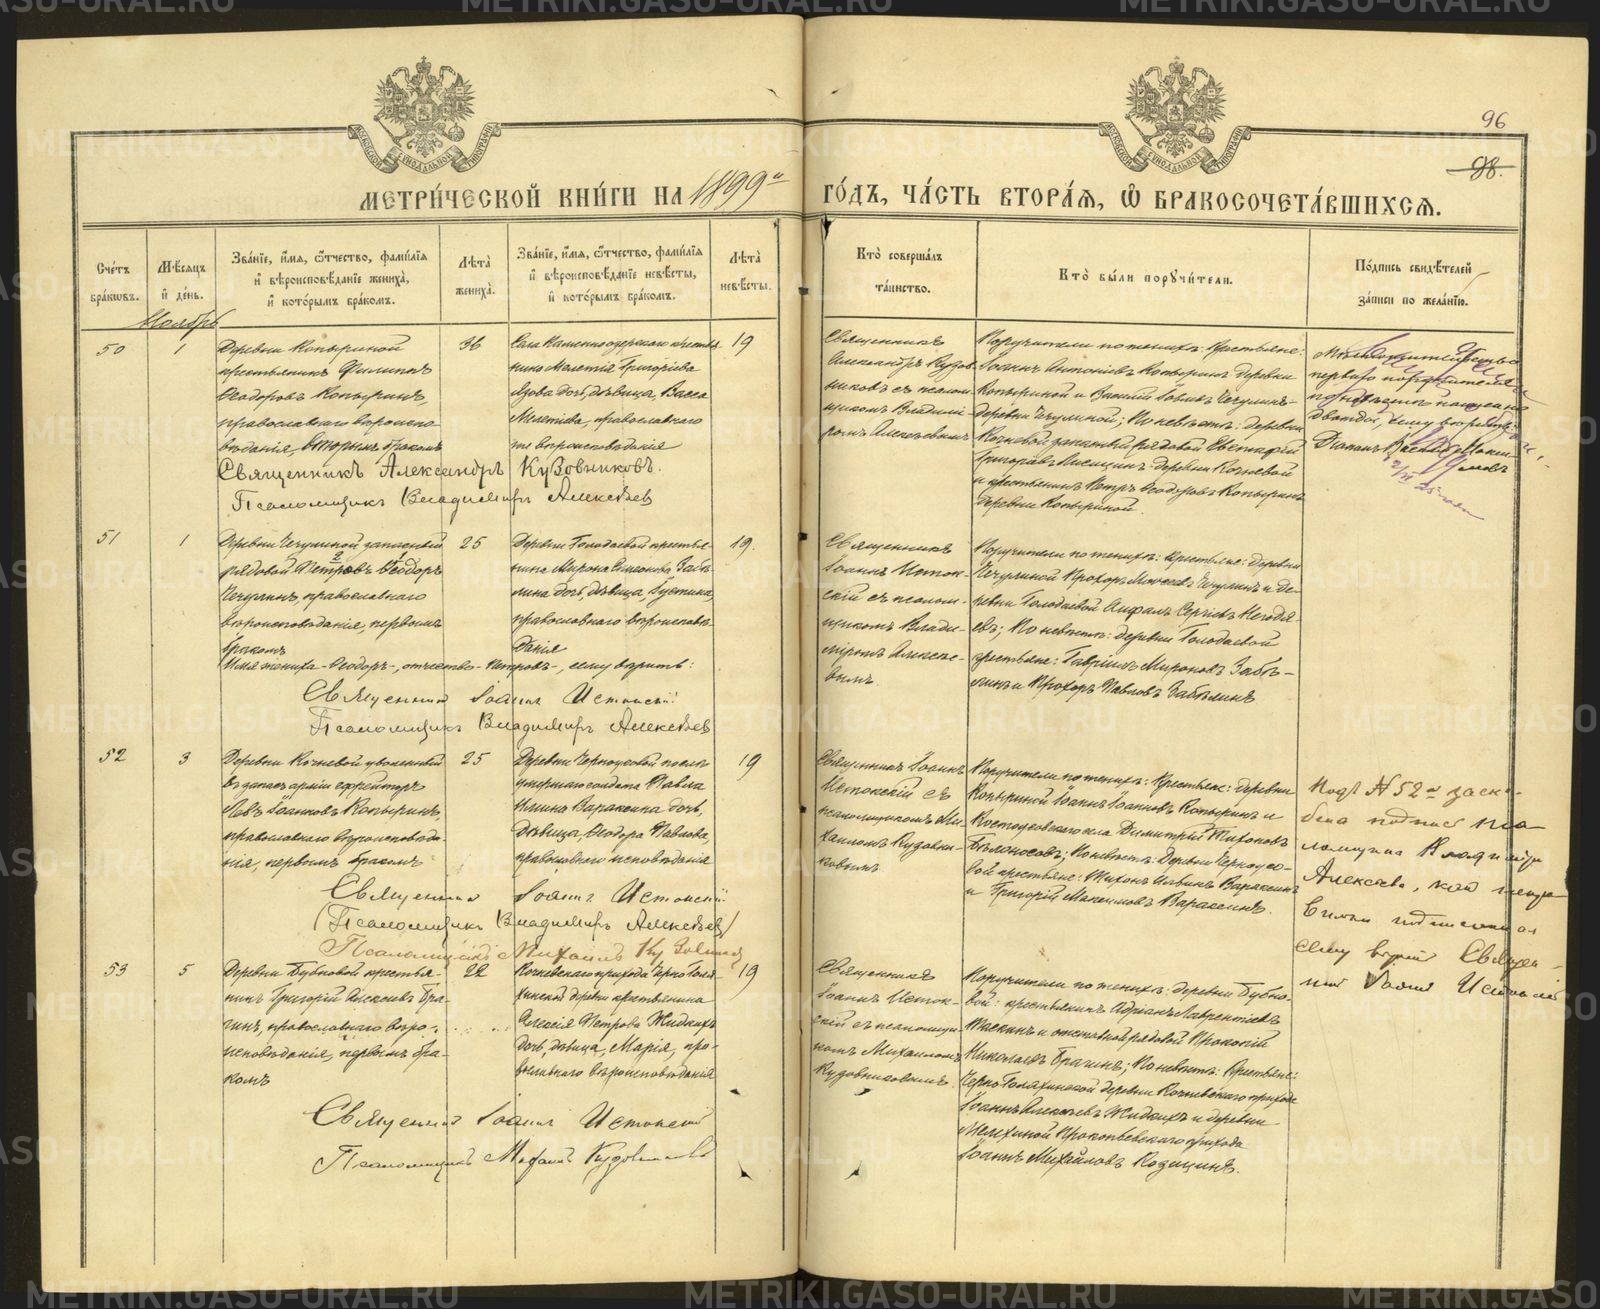 96
98.
МЕТРИ́ЧЕСКОЙ КНИ́ГИ НА 1899й ГО́ДЪ, ЧА́СТЬ ВТОРА́Я, Ѡ҆ БРАКОСОЧЕТА́ВШИХСЯ.
Сче́тъ
бра́кѡвъ.
Мѣ́сяцъ
и҆ де́нь.
Зва́нїе, и҆́мя, ѻ҆́тчество, фами́лїя
и҆ вѣроисповѣ́данїе жениха̀,
и҆ кото́рымъ бра́комъ.
Лѣ́та
жениха̀.
Зва́нїе, и҆́мя, ѻ҆́тчество, фами́лїя
и҆ вѣроисповѣ́данїе невѣ́сты,
и҆ кото́рымъ бра́комъ.
Лѣ́та
невѣ́сты.
Кто̀ соверша́лъ
та́инство.
Кто̀ бы́ли порꙋчи́тели.
По́дпись свидѣ́телей
за́писи по жела́нїю.
Ноябрь
50
1
Деревни Копыриной
крестьянинъ Филиппъ
Ѳеодоровъ Копыринъ,
православнаго вѣроиспо-
вѣданія, вторымъ бракомъ
36
Села Каменноозерскаго крестья-
нина Мелетія Григоріева
дочь, дѣвица, Васса
Мелетіева, православнаго
вѣроисповѣданія
19
Священникъ
Александръ Кудов-
никовъ съ псалом-
щикомъ Владимі-
ромъ Алексѣевымъ
Поручители по женихѣ: крестьяне:
Іоаннъ Антоніевъ Копыринъ деревни
Копыриной и Василій Чечулинъ
деревни Чечулиной; по невѣстѣ: деревни
Кочневой запасный рядовой
Григоріевъ Лисицинъ деревни Кочневой
и крестьянинъ Петръ Ѳеодоровъ Копыринъ
деревни Копыриной.
перваго поручителя
Священникъ Александръ Кудовниковъ.
Псаломщикъ Владимиръ Алексѣевъ
51
1
Деревни Чечулиной запасный
рядовой Петровъ Ѳеодоръ
Чечулинъ, православнаго
вѣроисповѣданія, первымъ
бракомъ
25
Деревни Голодаевой крестья-
нина Мирона Симеонова Забѣ-
лина дочь, дѣвица, Іустина,
православнаго вѣроисповѣ-
данія
19.
Священникъ
Іоаннъ Исток-
скій съ псалом-
щикомъ Влади-
міромъ Алексѣе-
вымъ.
Поручители по женихѣ: крестьяне: деревни
Чечулиной Прохоръ Моисеевъ Чечулинъ и де-
ревни Голодаевой Сергіевъ Негодя-
евъ; по невѣстѣ: деревни Голодаевой
крестьяне: Гавріилъ Мироновъ Забѣ-
линъ и Прохоръ Павловъ Забѣлинъ
Имя жениха - Ѳеодоръ -, отчество - Петровъ -, сему вѣрить:
Священникъ Іоаннъ Истокскій
Псаломщикъ Владимиръ Алексѣевъ
52
3
Деревни Кочневой уволенный
въ запасъ арміи ефрейторъ
Левъ Іоанновъ Копыринъ,
православнаго вѣроисповѣда-
нія, первымъ бракомъ
25
Деревни Черноусовой послѣ
умершаго солдата Павла
Ильина Вараксина дочь,
дѣвица, Ѳеодора Павлова,
православнаго исповѣданія
19
Священникъ Іоаннъ
Истокскій съ
псаломщикомъ Ми-
хаиломъ Кудовни-
ковымъ.
Поручители по женихѣ: крестьяне: деревни
Копыриной Іоаннъ Іоанновъ Копыринъ и
Костоусовскаго села Димитрій Тихоновъ
Бѣлоносовъ; по невѣстѣ: деревни Черноусо-
вой крестьяне: Тихонъ Ильинъ Вараксинъ
и Григорій Максимовъ Вараксинъ.
Подъ № 52м заскоб-
лена подпись пса-
ломщика Владимира
Алексѣева,
сему вѣрить Священ-
никъ Іоаннъ Истокскій
Священникъ Іоаннъ Истокскій
(Псаломщикъ Владимиръ Алексѣевъ)
Псаломщикъ Михаилъ Кудовниковъ
53
5
Деревни Бубновой крестья-
нинъ Григорій Алексѣевъ Бра-
гинъ, православнаго вѣро-
исповѣданія, первымъ бра-
комъ
22
Кочневскаго прихода Черноголя-
хинской деревни крестьянина
Алексія Петрова Жидкихъ
дочь, дѣвица, Марія, пра-
вославнаго вѣроисповѣданія
19
Священникъ
Іоаннъ Исток-
скій съ псаломщи-
комъ Михаиломъ
Кудовниковымъ.
Поручители по женихѣ: деревни Бубно-
вой: крестьянинъ Адріанъ Лаврентіевъ
Таскинъ и отставной рядовой Прокопій
Николаевъ Брагинъ; по невѣстѣ: крестьяне:
Черноголяхинской деревни Кочневскаго прихода
Іоаннъ Алексѣевъ Жидкихъ и деревни
Мелехиной Прокопьевскаго прихода
Іоаннъ Михайловъ Козицинъ.
Священникъ Іоаннъ Истокскій
Псаломщикъ Михаилъ Кудовниковъ
METRIKI.GASO-URAL.RU